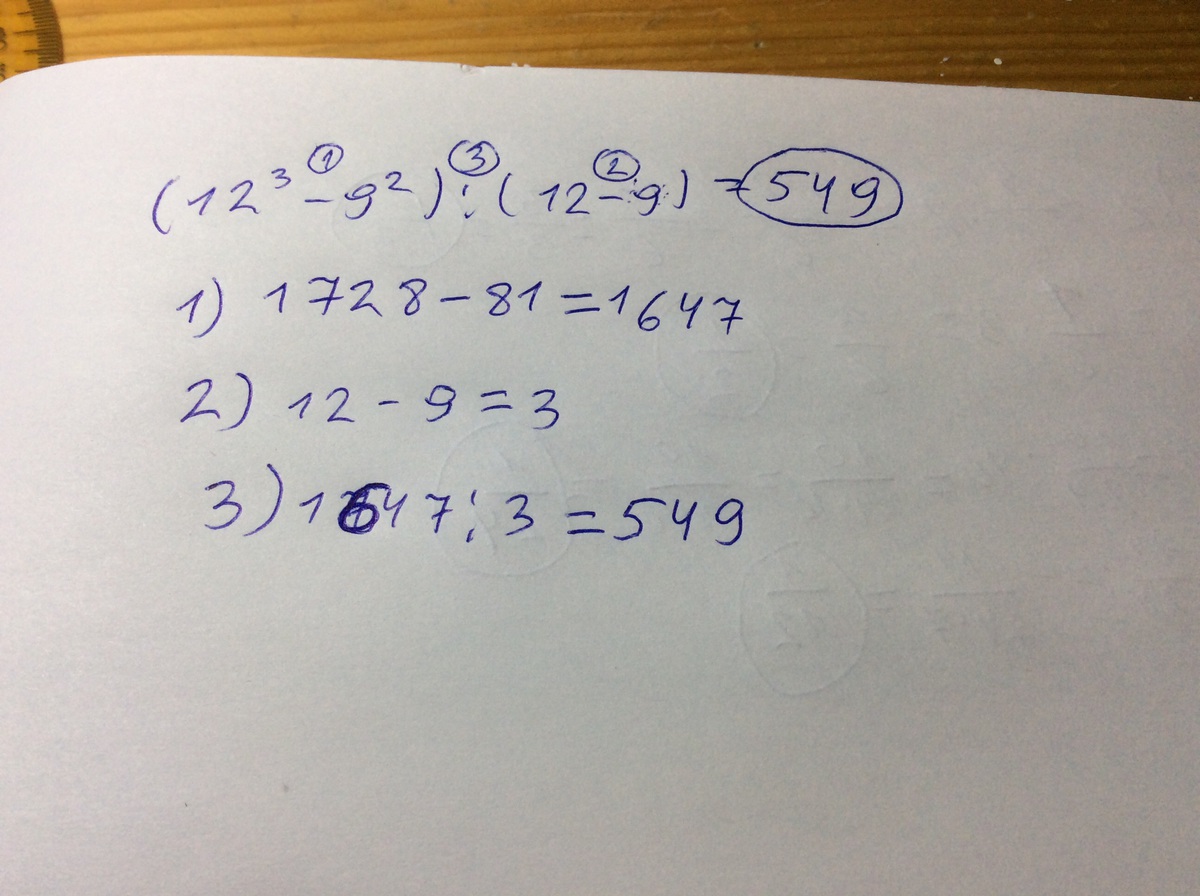 (12³ ① - 9²) ③ : (12 ② - 9) = 549
1) 1728 - 81 = 1647
2) 12 - 9 = 3
3) 1647 : 3 = 549